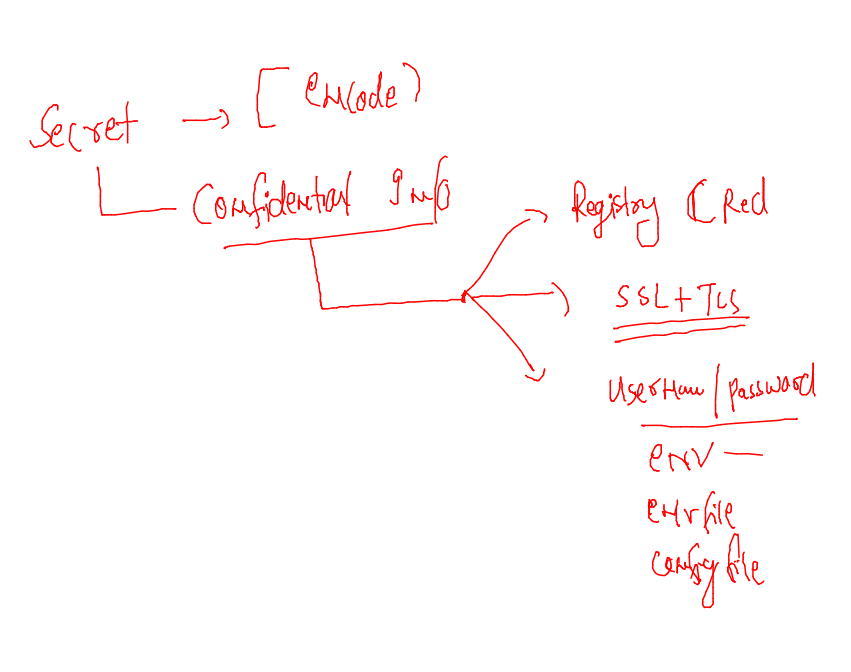 Secret → [ encode )
Confidential Info
Registry CRed
SSL + TLS
username / password
env —
env file
config file